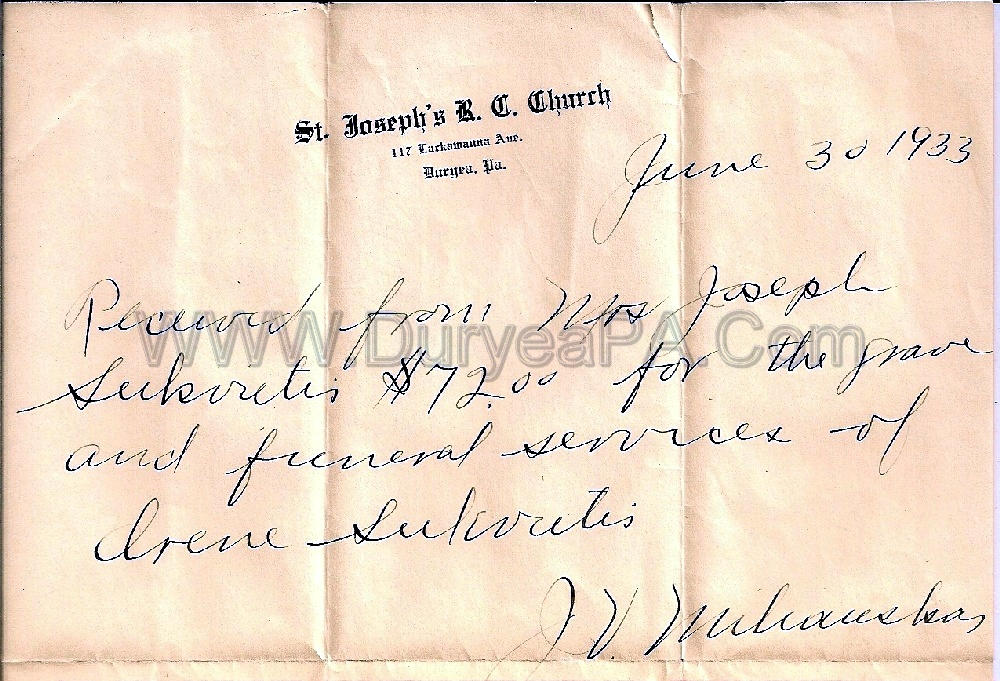 St. Joseph's R. C. Church
117 Lackawanna Ave.
Duryea, Pa.
June 30 1933
Received from Mrs Joseph
www.DuryeaPA.Com
Sukvietis $72.00 for the grave
and funeral services of
Irene Sukvietis
J. V. Miliauskas